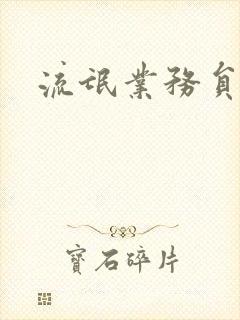 流氓業務員
寶石碎片